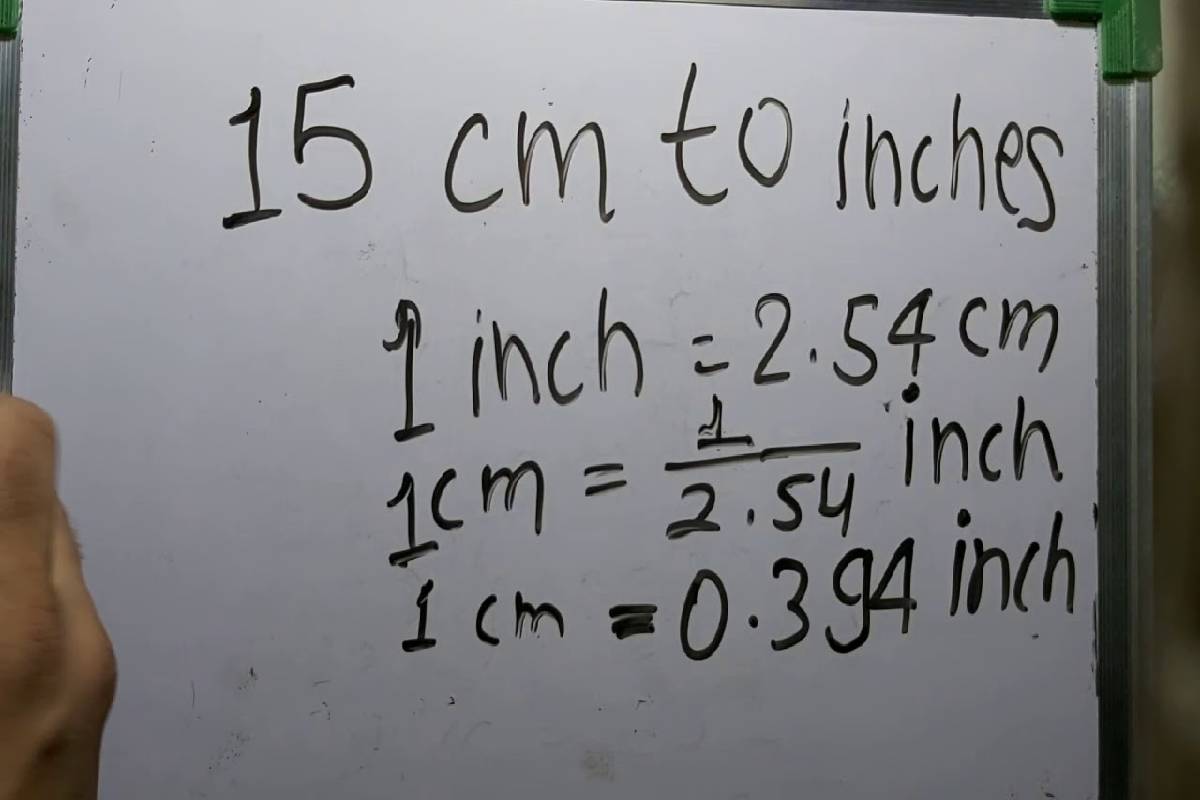 15 cm to inches
1 inch = 2.54 cm
1cm = 1/2.54 inch
1 cm = 0.394 inch